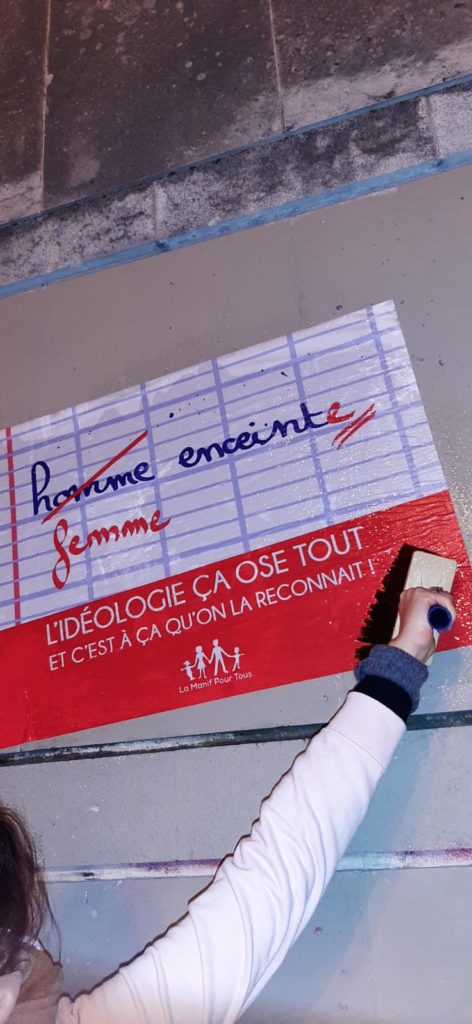 homme enceinte
femme
L'IDÉOLOGIE ÇA OSE TOUT
ET C'EST À ÇA QU'ON LA RECONNAIT !
La Manif Pour Tous